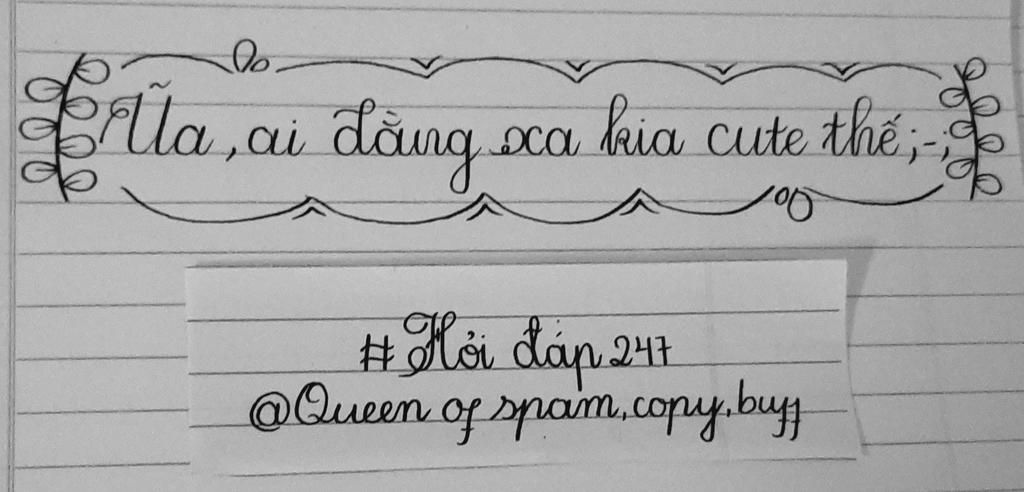 Ũa, ai đằng xa kia cute thế;-;
#Hỏi đáp 247
@Queen of spam, copy, buff